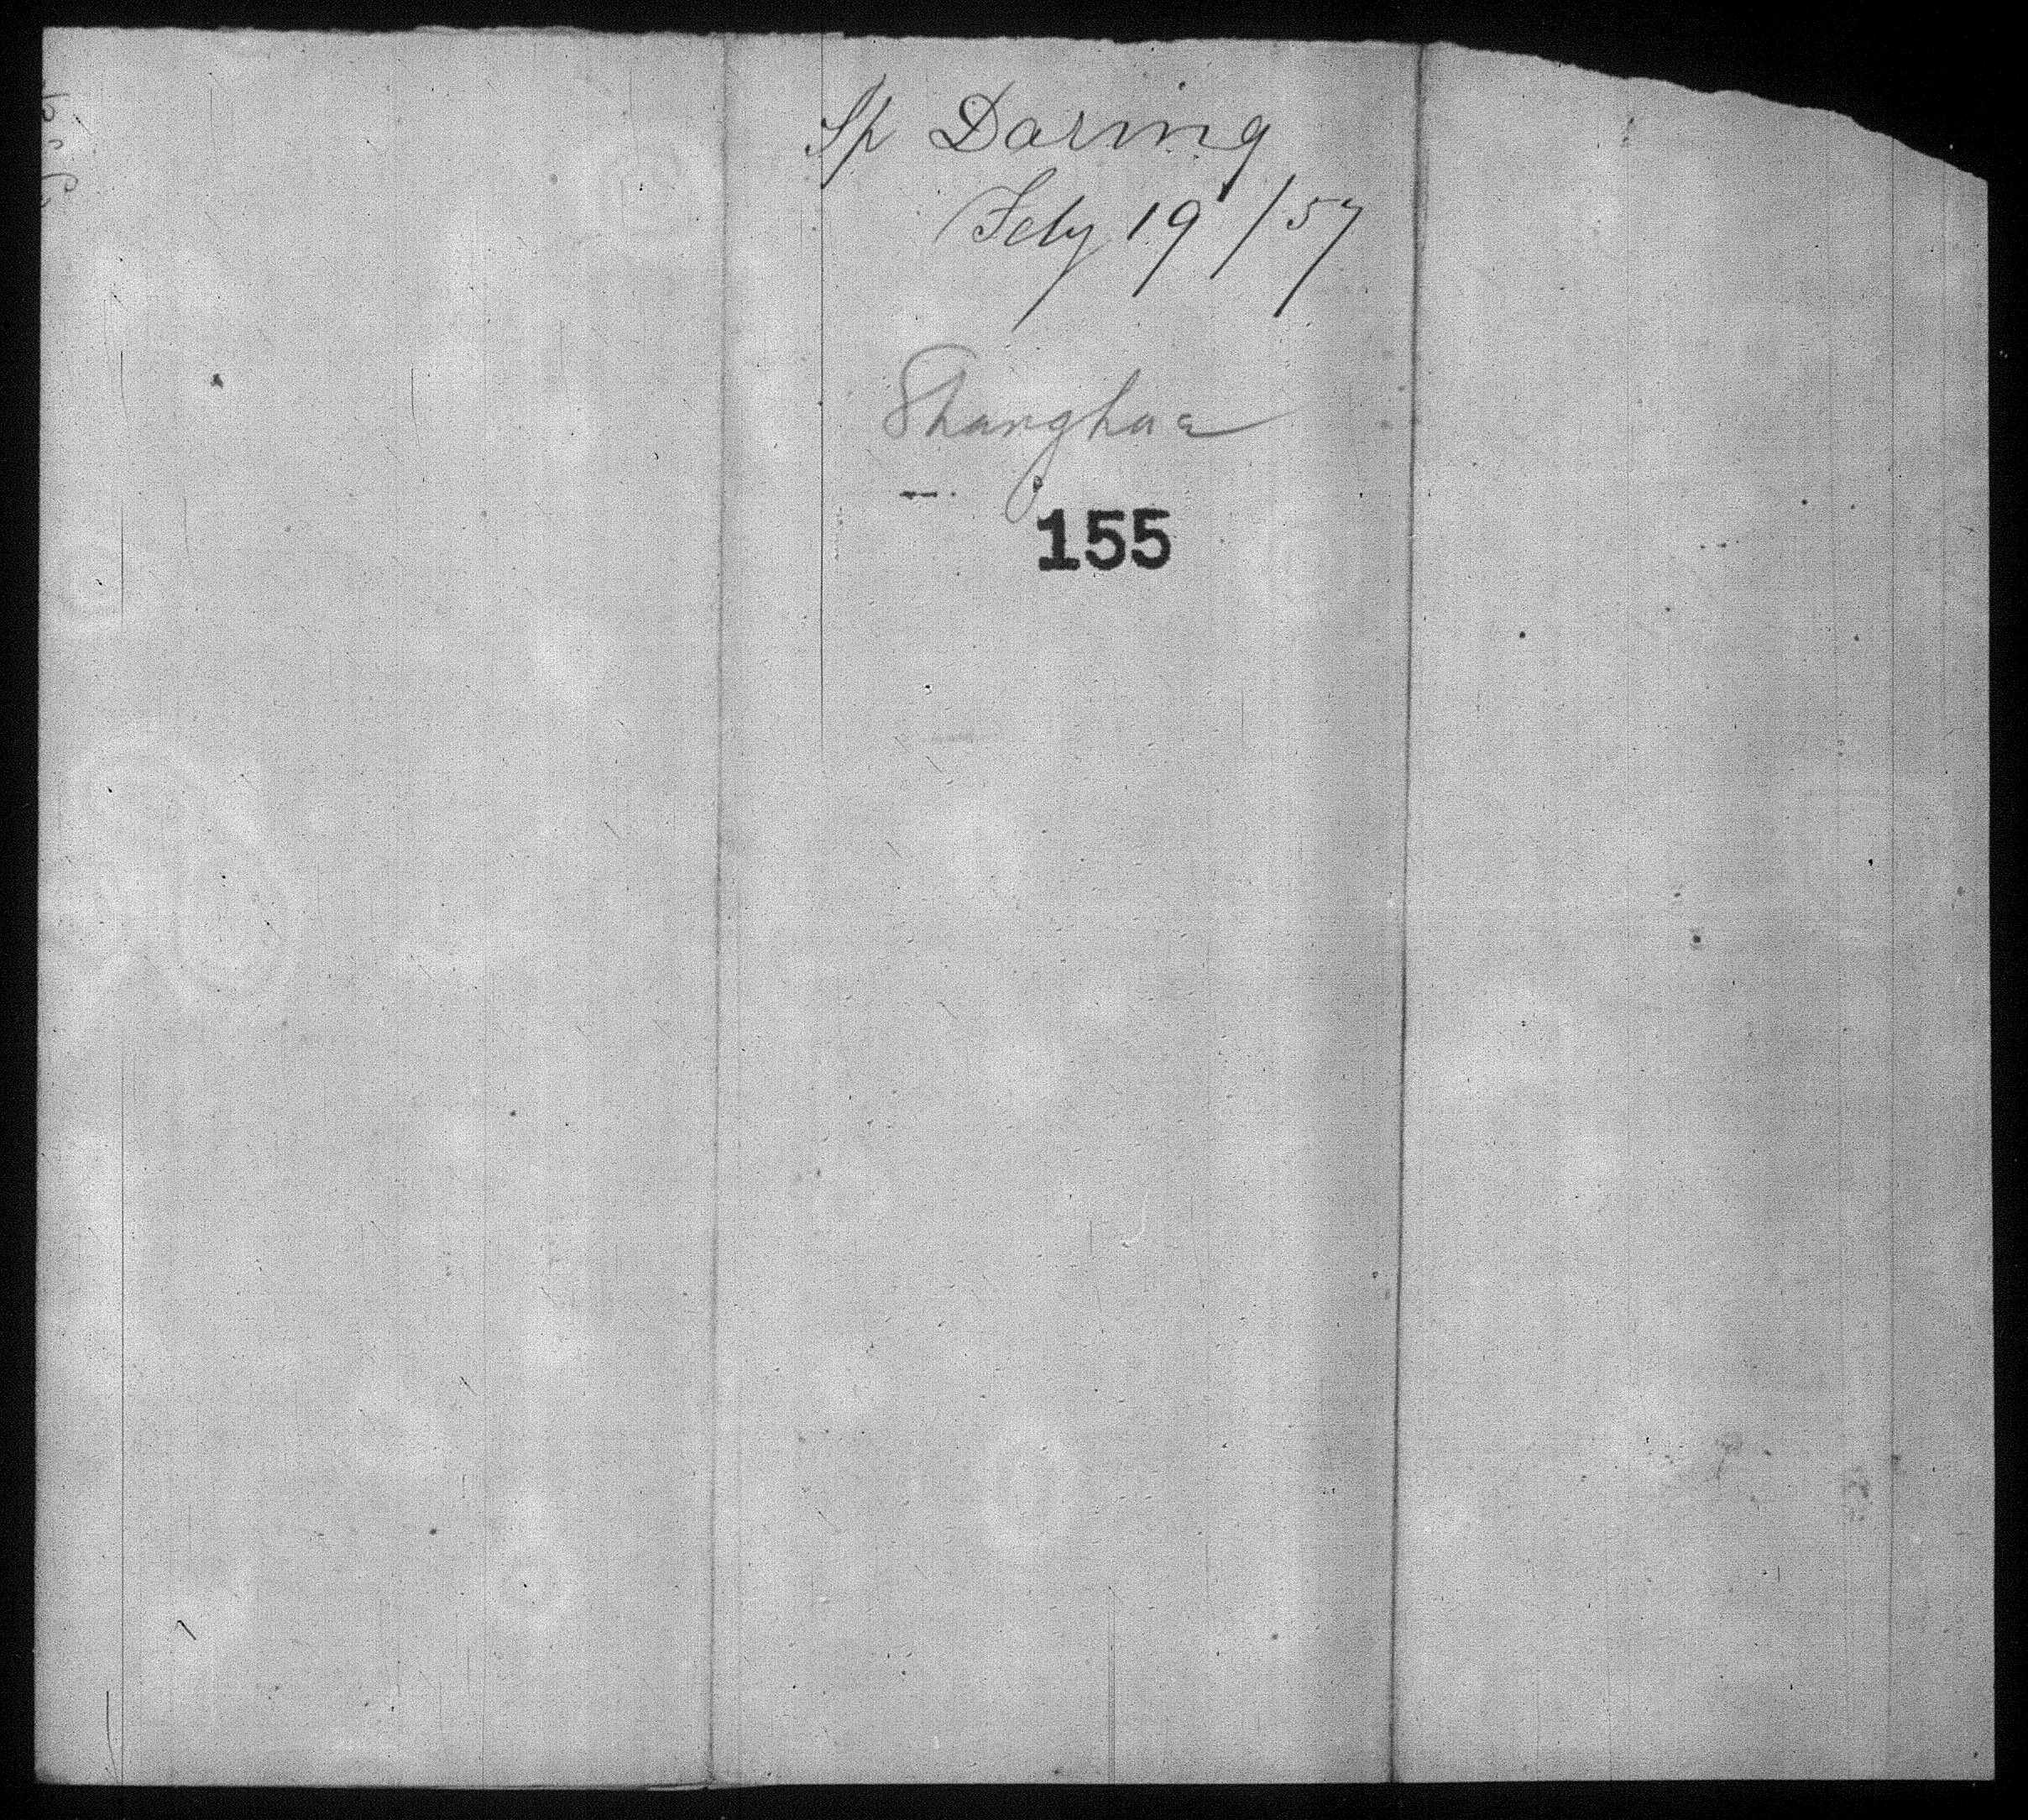 Sp Daring
Feby 19/57
Shanghae
155